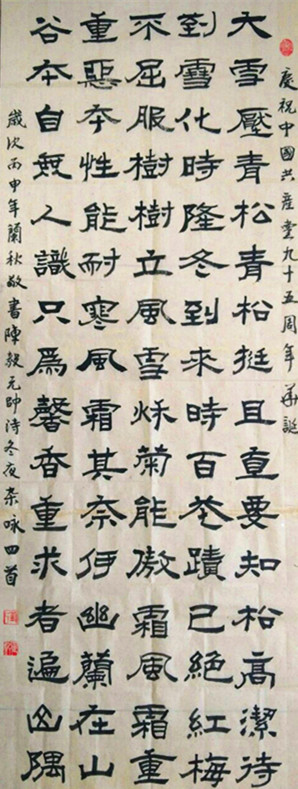 慶祝中國共產黨九十五周年華誕
大雪壓青松青松挺且直要知松高潔待
到雪化時隆冬到來時百花蹟已絕紅梅
不屈服樹樹立風雪秌菊能傲霜風霜重
重惡本性能耐寒風霜其奈何幽蘭在山
谷本自無人識只為馨香重求者遍山隅
歲次丙申年蘭秋敬書陳毅元帥詩冬夜雜詠四首